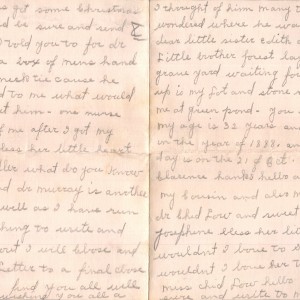 as got some Christmas
be sure and send
I told you to for dr
a box of mens hand
neck tie cause he
d to me what would
t him. one nurse
of me after I got my
less her little heart
ller what do you know
d dr murray is another
well as I have run
thing to write and
I will close and
letter to a final close
find you all well
wishing you all a
I thought of him many t
wondered where he wa
dear little sister Edith
Little brother forest lay
grave yard waiting fo
up is my Lot and stone
me at green pond. you
my age is 32 years an
in the year of 1898. an
day is on the 21 of Oct.
Clarence hanks hello a
my cousin and also m
dr chd Low and sweet
Josephene bless her lit
wouldnt I love to s
wouldnt I love her t
miss chid Low hello
sure and write to